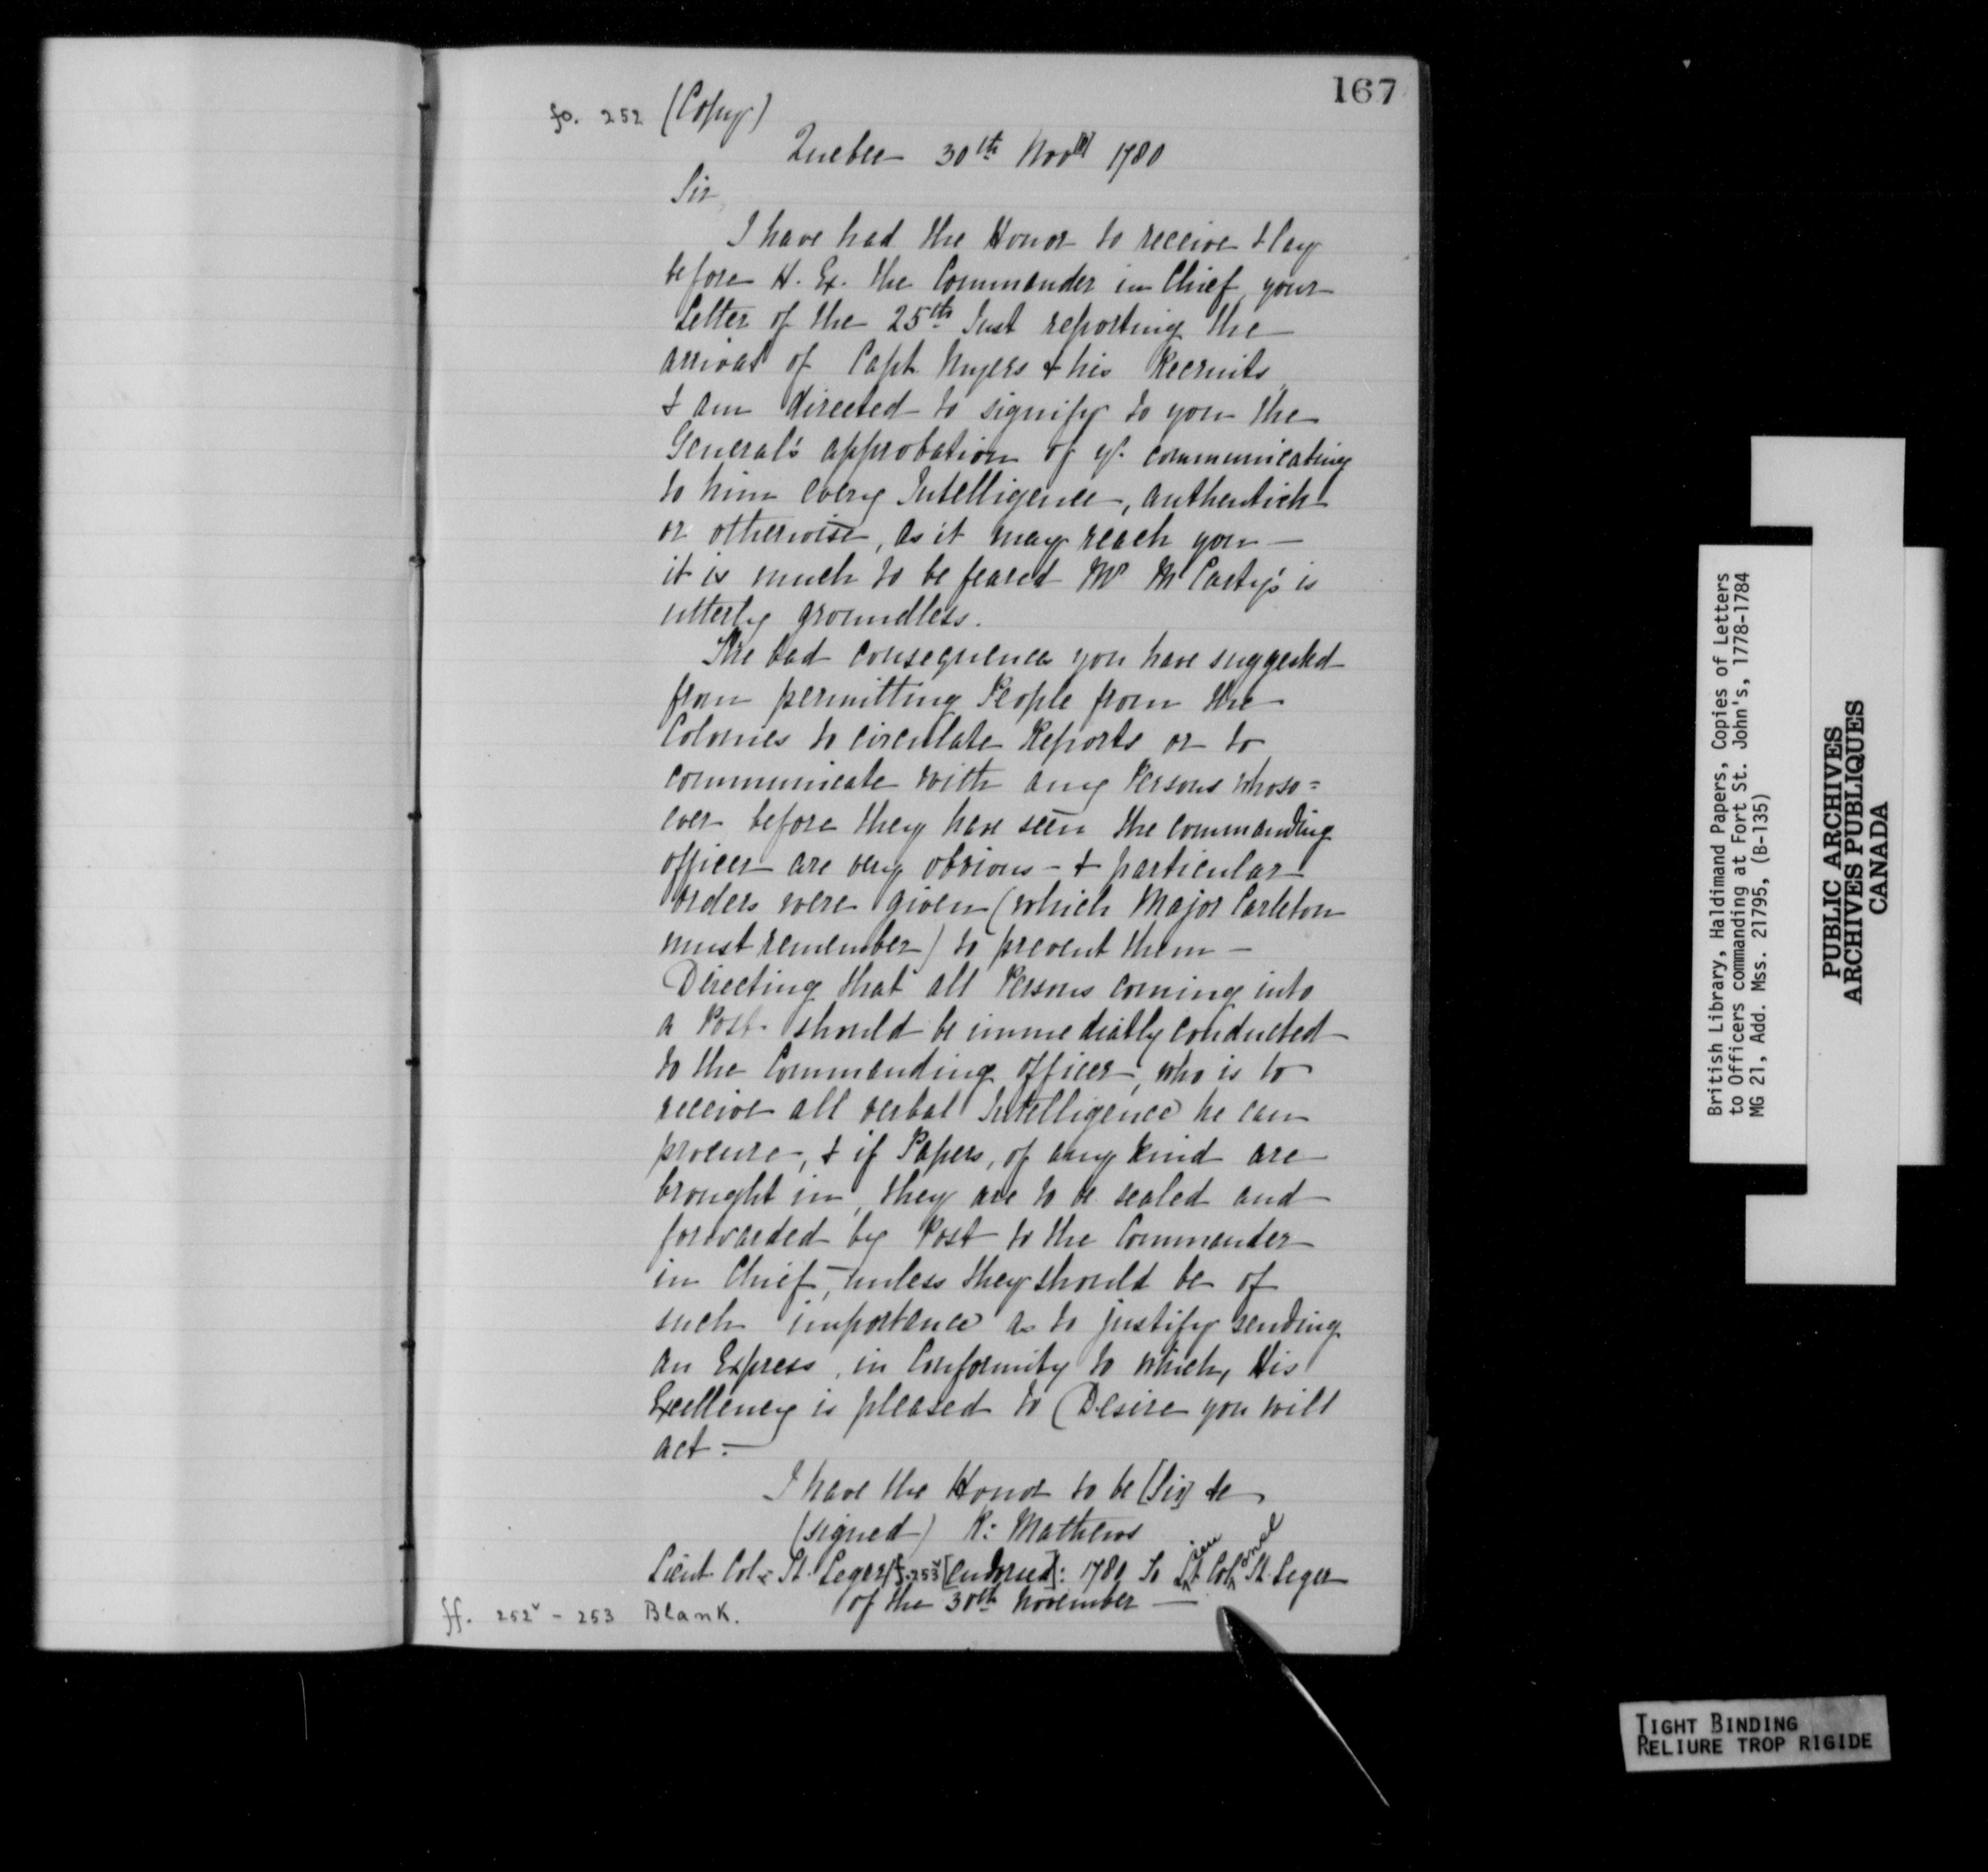 167
fo. 252 (Copy)
Quebec 30th Nov[r] 1780
Sir,
I have had the Honor to receive & lay
before H. Ex. the Commander in Chief, your
Letter of the 25th Inst reporting the
arrival of Capt. Myers & his Recruits,
I am directed to signify to you the
General's approbation of yr. communicating
to him every Intelligence, authentick
or otherwise, as it may reach you —
it is much to be feared Mr McCarty's is
utterly groundless.
The bad consequences you have suggested
from permitting People from the
Colonies to circulate Reports or to
communicate with any Persons whoso=
ever before they have seen the commanding
officer are very obvious - & particular
orders were given (which Major Carleton
must remember) to prevent them —
Directing that all Persons coming into
a Post should be immediatly conducted
to the Commanding officer, who is to
receive all verbal Intelligence he can
procure, & if Papers, of any kind are
brought in, they are to be sealed and
forwarded by Post to the Commander
in Chief, unless they should be of
such importance as to justify sending
an Express, in Conformity to which, His
Excellency is pleased to Desire you will
act. —
I have the Honor to be [Sir] &c
(signed) R: Mathews
Lieut. Col: St. Leger [f. 253v] [Endorsed]: 1780 To Lieut Colonel St. Leger
of the 30th November —
ff. 252v - 253 Blank.
British Library, Haldimand Papers, Copies of Letters
to Officers commanding at Fort St. John's, 1778-1784
MG 21, Add. Mss. 21795, (B-135)
PUBLIC ARCHIVES
ARCHIVES PUBLIQUES
CANADA
TIGHT BINDING
RELIURE TROP RIGIDE